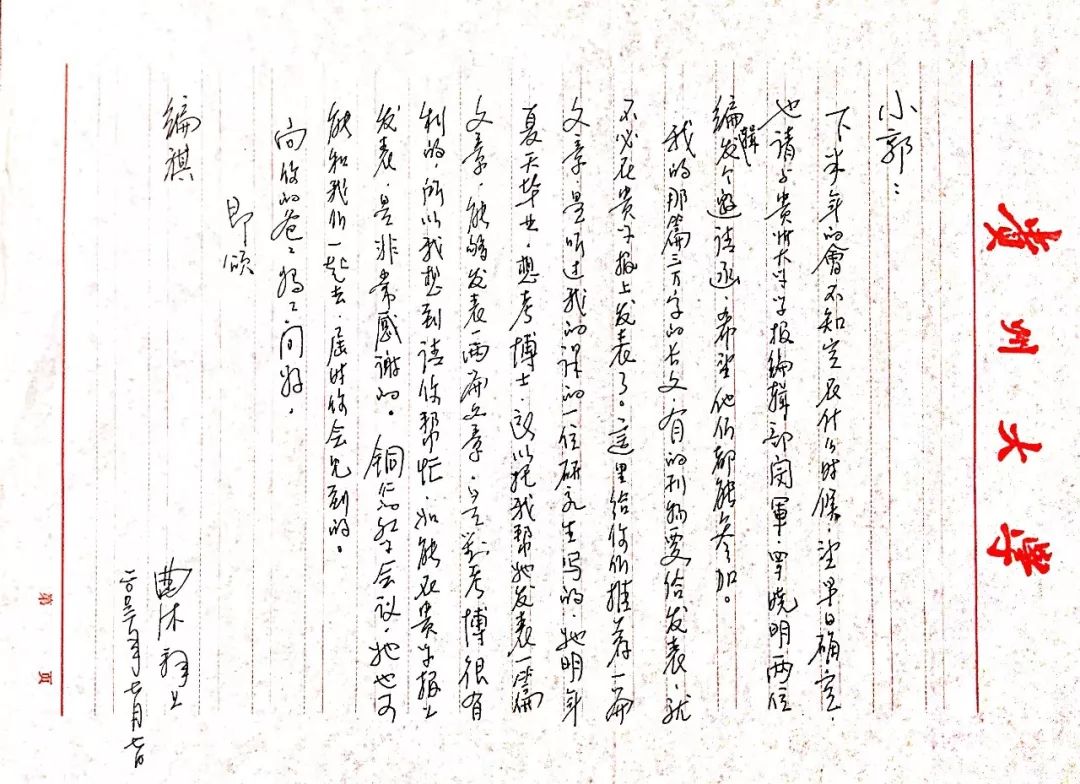 贵州大学
小郭:
下半年的會不知定在什么时候,望早日确定,
也请与贵州大学学报编辑部闵軍、罗晓明两位
编辑发个邀请函,希望他们都能参加。
我的那篇三万字的长文,有的刊物要给发表,就
不必在贵学报上发表了。這里给你们推荐一篇
文章,是听过我的课的一位研究生写的,她明年
夏天毕业,想考博士,所以托我帮她发表一篇
文章,能够发表两篇文章,是對考博很有
利的,所以我想到请你帮忙,如能在贵学报上
发表,是非常感谢的。铜仁红学会议,她也可
能和我们一起去,届时你会见到的。
向你的爸二妈二问好。
即颂
编祺
曲沐拜上
二〇〇六年七月七日
第 页